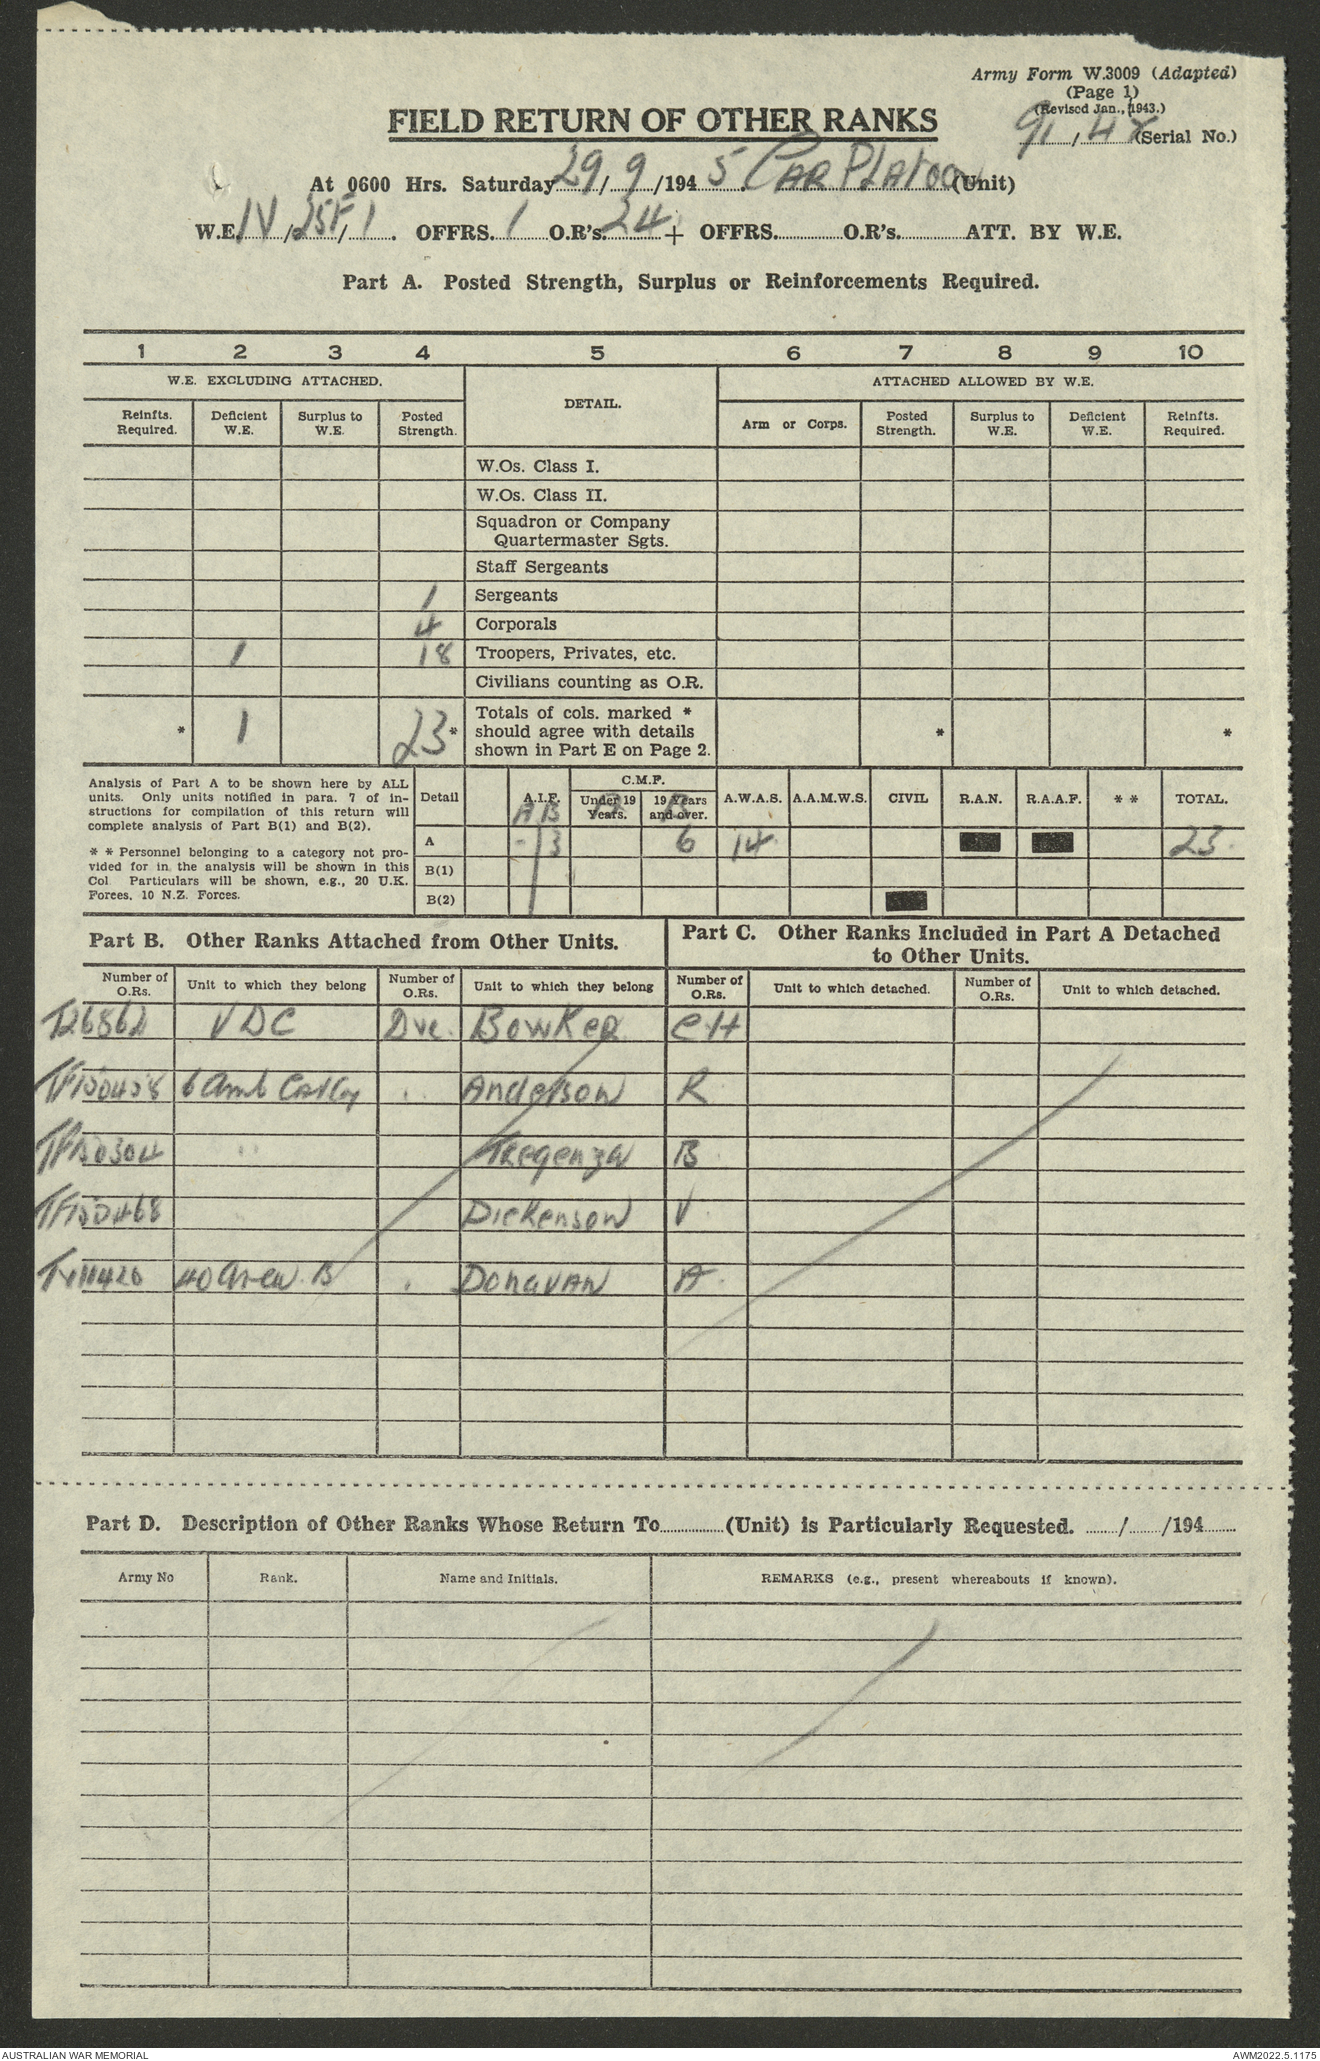 Army Form W.3009 (Adapted)
(Page 1)
(Revised Jan., 1943.)
91/47 (Serial No.)
FIELD RETURN OF OTHER RANKS
At 0600 Hrs. Saturday 29/9/1945. Car Platoon (Unit)
W.E. IV/25F/1. OFFRS. 1 O.R's. 24 + OFFRS. O.R's. ATT. BY W.E.
Part A. Posted Strength, Surplus or Reinforcements Required.
1 2 3 4 5 6 7 8 9 10
W.E. EXCLUDING ATTACHED. DETAIL. ATTACHED ALLOWED BY W.E.
Reinfts. Required. Deficient W.E. Surplus to W.E. Posted Strength. Arm or Corps. Posted Strength. Surplus to W.E. Deficient W.E. Reinfts. Required.
W.Os. Class I.
W.Os. Class II.
Squadron or Company
Quartermaster Sgts.
Staff Sergeants
1 Sergeants
4 Corporals
1 18 Troopers, Privates, etc.
Civilians counting as O.R.
Totals of cols. marked *
* 1 23* should agree with details * *
shown in Part E on Page 2.
Analysis of Part A to be shown here by ALL
units. Only units notified in para. 7 of in-
structions for compilation of this return will
complete analysis of Part B(1) and B(2).
* * Personnel belonging to a category not pro-
vided for in the analysis will be shown in this
Col Particulars will be shown, e.g., 20 U.K.
Forces, 10 N.Z. Forces.
Detail A.I.F. C.M.F. Under 19 Years. 19 Years and over. A.W.A.S. A.A.M.W.S. CIVIL R.A.N. R.A.A.F. * * TOTAL.
A B B
A - 3 6 14 23
B(1)
B(2)
Part B. Other Ranks Attached from Other Units.
Part C. Other Ranks Included in Part A Detached
to Other Units.
Number of O.Rs. Unit to which they belong Number of O.Rs. Unit to which they belong Number of O.Rs. Unit to which detached. Number of O.Rs. Unit to which detached.
T26862 VDC Dvr. Bowker C H
TF150458 6 Amb Car Coy " Anderson R
TF150304 " Tregenza B
TF150468 Dickenson V
40 Area B " Donavan A
Part D. Description of Other Ranks Whose Return To (Unit) is Particularly Requested. / /194
Army No Rank. Name and Initials. REMARKS (e.g., present whereabouts if known).
AUSTRALIAN WAR MEMORIAL AWM2022.5.1175